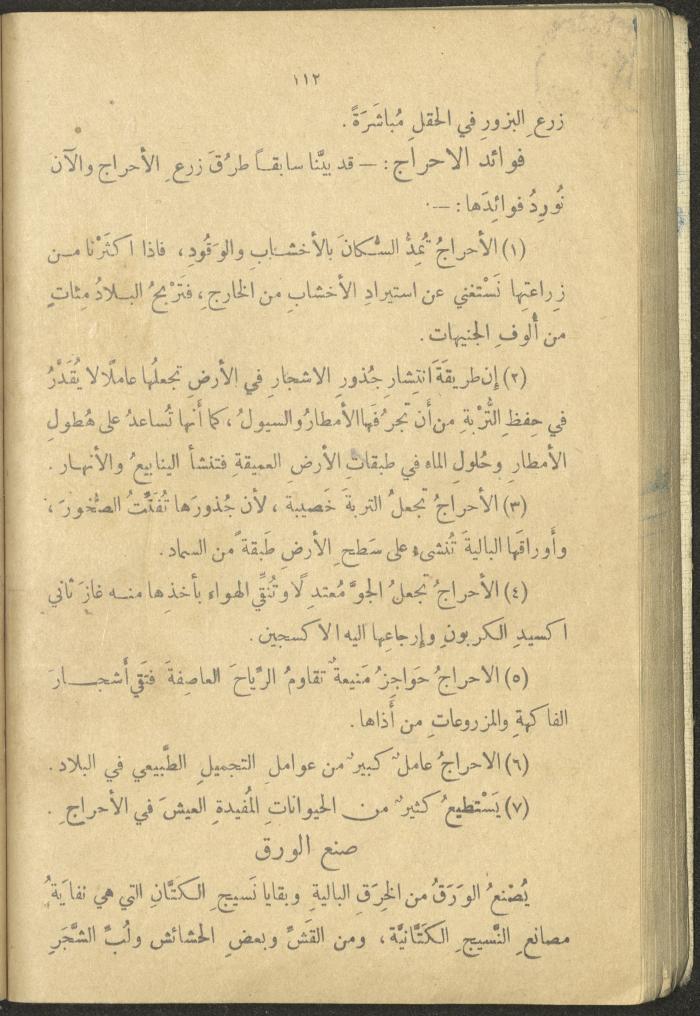 ١١٢
زرعِ البزورِ في الحقلِ مُباشَرَةً .
فوائد الاحراج : — قد بيَّنا سابقـاً طرُقَ زرعِ الأحراج والآن
نُورِدُ فوائِدَها : —
(١) الأحراجُ تُمِدُّ السُّكانَ بالأخشـابِ والوَقُودِ ، فاذا اكثَرْنا مـن
زِراعتِها نَسْتغني عن استيرادِ الأخشابِ من الخارجِ ، فتَرْبحُ البـلادُ مِئاتٍ
من أُلوفِ الجنيهات .
(٢) إن طريقَةَ انتِشارِ جُذورِ الاشجارِ في الأرضِ تجعلُها عاملًا لا يُقَدَّرُ
في حِفظِ التُّرْبةِ من أَن تجرُفَها الأمطارُ والسيولُ ، كما أَنها تُساعدُ على هُطولِ
الأمطارِ وحُلولِ الماءِ في طبقاتِ الأرضِ العميقةِ فتنشأُ الينابيعُ والأنهـار .
(٣) الأحراجُ تجعلُ التربةَ خَصيبةً ، لأن جُذورَها تُفَتِّتُ الصُّخورَ ،
وأَوراقَها الباليةَ تُنشىءُ على سَطحِ الأرضِ طَبقةً من السماد .
(٤) الأحراجُ تجعلُ الجوَّ مُعتدِلًا وتُنَقِّي الهواء بأخذِها منـه غازَ ثاني
اكسيدِ الكربونِ وإرجاعِها اليه الاكسجين .
(٥) الاحراجُ حَواجِزُ مَنيعةٌ تقاومُ الرِّياحَ العاصِفةَ فتَقي أَشجـــارَ
الفاكهةِ والمزروعاتِ من أَذاها .
(٦) الاحراجُ عاملٌ كبيرٌ من عواملِ التجميلِ الطَّبيعي في البلاد .
(٧) يَسْتطيعُ كثيرٌ من الحيواناتِ المُفيدةِ العيشَ في الأحراجِ .
صنع الورق
يُصْنعُ الوَرَقُ من الخِرَقِ الباليةِ وبقايا نَسيجِ الكتَّانِ التي هي نفايَةُ
مصانعِ النَّسيجِ الكَتَّانيَّة ، ومن القَشِّ وبعضِ الحشائش ولُبِّ الشَّجَرِ